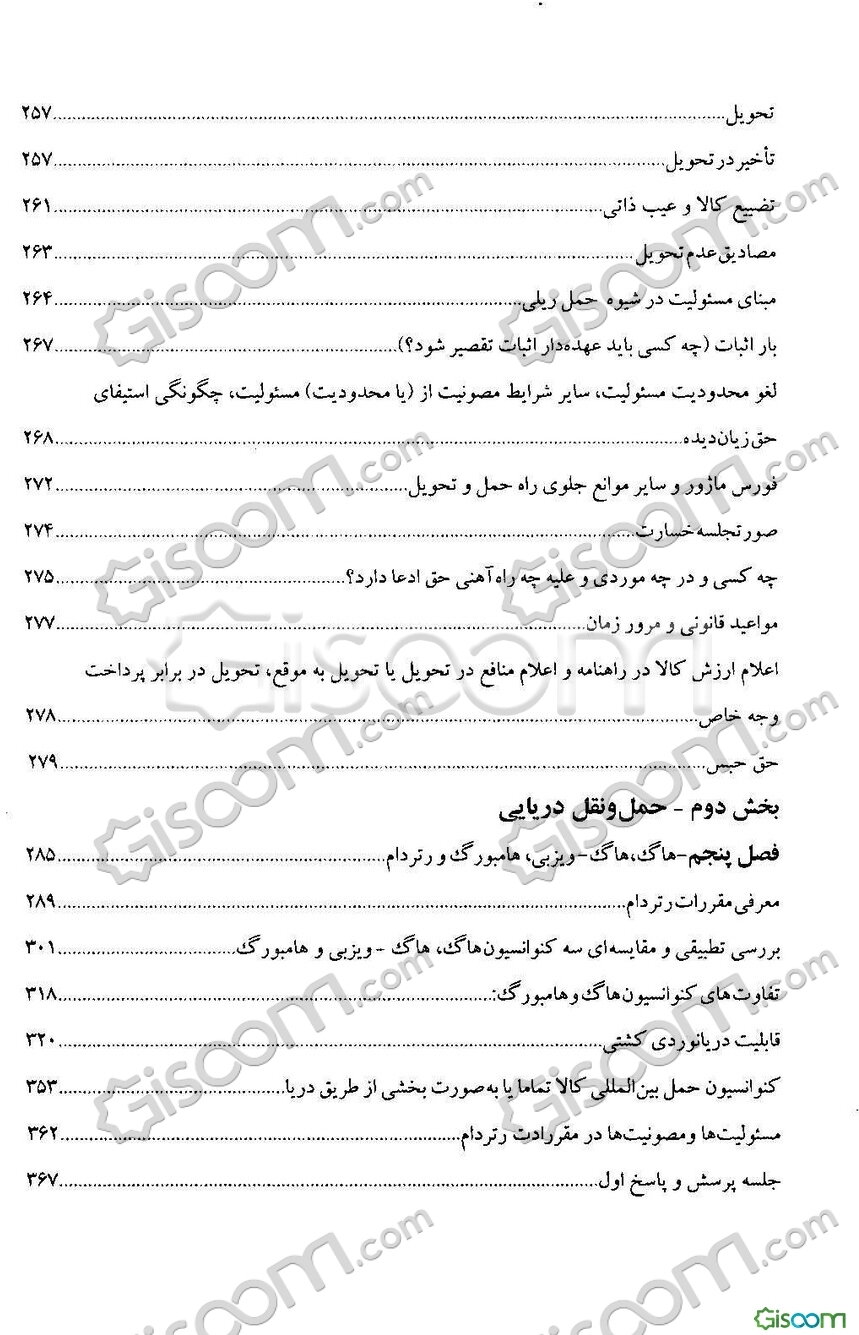 تحویل................۲۵۷
تأخیر در تحویل................۲۵۷
تضییع کالا و عیب ذاتی................۲۶۱
مصادیق عدم تحویل................۲۶۳
مبنای مسئولیت در شیوه حمل ریلی................۲۶۴
بار اثبات (چه کسی باید عهده‌دار اثبات تقصیر شود؟)................۲۶۷
لغو محدودیت مسئولیت، سایر شرایط مصونیت از (یا محدودیت) مسئولیت، چگونگی استیفای
حق زیان‌دیده................۲۶۸
فورس ماژور و سایر موانع جلوی راه حمل و تحویل................۲۷۲
صورتجلسه خسارت................۲۷۴
چه کسی و در چه موردی و علیه چه راه‌آهنی حق ادعا دارد؟................۲۷۵
مواعید قانونی و مرور زمان................۲۷۷
اعلام ارزش کالا در راهنامه و اعلام منافع در تحویل یا تحویل به موقع، تحویل در برابر پرداخت
وجه خاص................۲۷۸
حق حبس................۲۷۹
بخش دوم - حمل‌ونقل دریایی
فصل پنجم-هاگ، هاگ-ویزبی، هامبورگ و رتردام................۲۸۵
معرفی مقررات رتردام................۲۸۹
بررسی تطبیقی و مقایسه‌ای سه کنوانسیون هاگ، هاگ - ویزبی و هامبورگ................۳۰۱
تفاوت‌های کنوانسیون هاگ و هامبورگ:................۳۱۸
قابلیت دریانوردی کشتی................۳۲۰
کنوانسیون حمل بین‌المللی کالا تماما یا به‌صورت بخشی از طریق دریا................۳۵۳
مسئولیت‌ها و مصونیت‌ها در مقررادت رتردام................۳۶۲
جلسه پرسش و پاسخ اول................۳۶۷
Gisoom